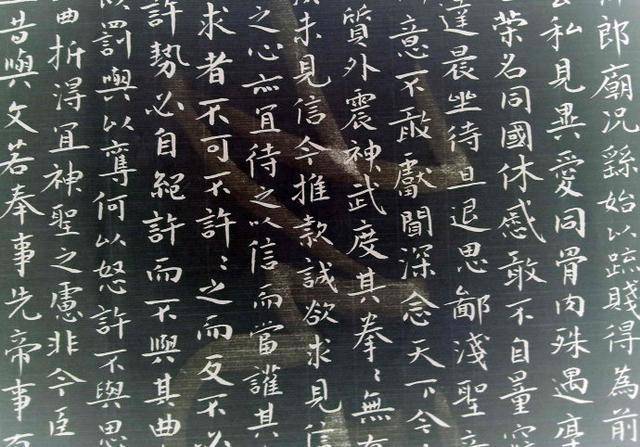 郎廟況繇始以疏賤得為前
公私見異愛同骨肉殊遇厚
榮名同國休慼敢不自量竊
達晨坐待旦退思鄙淺聖意
意不敢獻聞深念天下今
質外震神武度其拳〻無有
未見信今推款誠欲求見信
之心亦宜待之以信而當護其
求者不可不許〻之而反不必
許勢必自絕許而不與其曲
以罰與以奪何以怒許不與思
曲折得宜神聖之慮非今臣
昔與文若奉事先帝事有